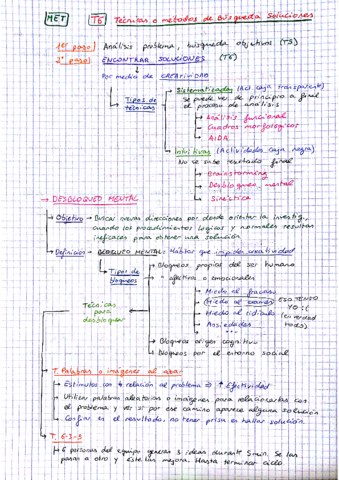 MET T6 Técnicas o métodos de Búsqueda Soluciones
1er paso) Análisis problema, búsqueda objetivos (T5)
2º paso) ENCONTRAR SOLUCIONES (T6)
Por medio de CREATIVIDAD
Tipos de técnicas
Sistematizadas (Act caja transparente)
Se puede ver de principio a final
el proceso de análisis
Análisis funcional
Cuadros morfológicos
AIDA
Intuitivas (Actividades caja negra)
No se sabe resultado final
Brainstorming
Desbloqueo mental
Sinéctica
→ DESBLOQUEO MENTAL
Objetivo → Buscar nuevas direcciones por donde orientar la investig,
cuando los procedimientos lógicos y normales resultan
ineficaces para obtener una solución
Definición → BLOQUEO MENTAL: Hábitos que impiden creatividad
Tipos de bloqueos
Bloqueos propios del ser humano
" afectivos o emocionales
Miedo al fracaso
Miedo al examen ESO TENGO YO :(
Miedo al ridículo (en verdad todos)
Ansiedades
Bloqueos origen cognitivo
Bloqueos por el entorno social
Técnicas para desbloquear
T. Palabras o imágenes al azar
Estímulos con ↓ relación al problema ⇒ ↑ efectividad
Utilizar palabras aleatorias o imágenes para relacionarlas con
el problema y ver si por ese camino aparece alguna solución
Confiar en el resultado, no tener prisa en hallar solución.
T. 6-3-5
6 personas del equipo generan 3 ideas durante 5 min. Se las
pasan a otro y este las mejora. Hasta terminar ciclo